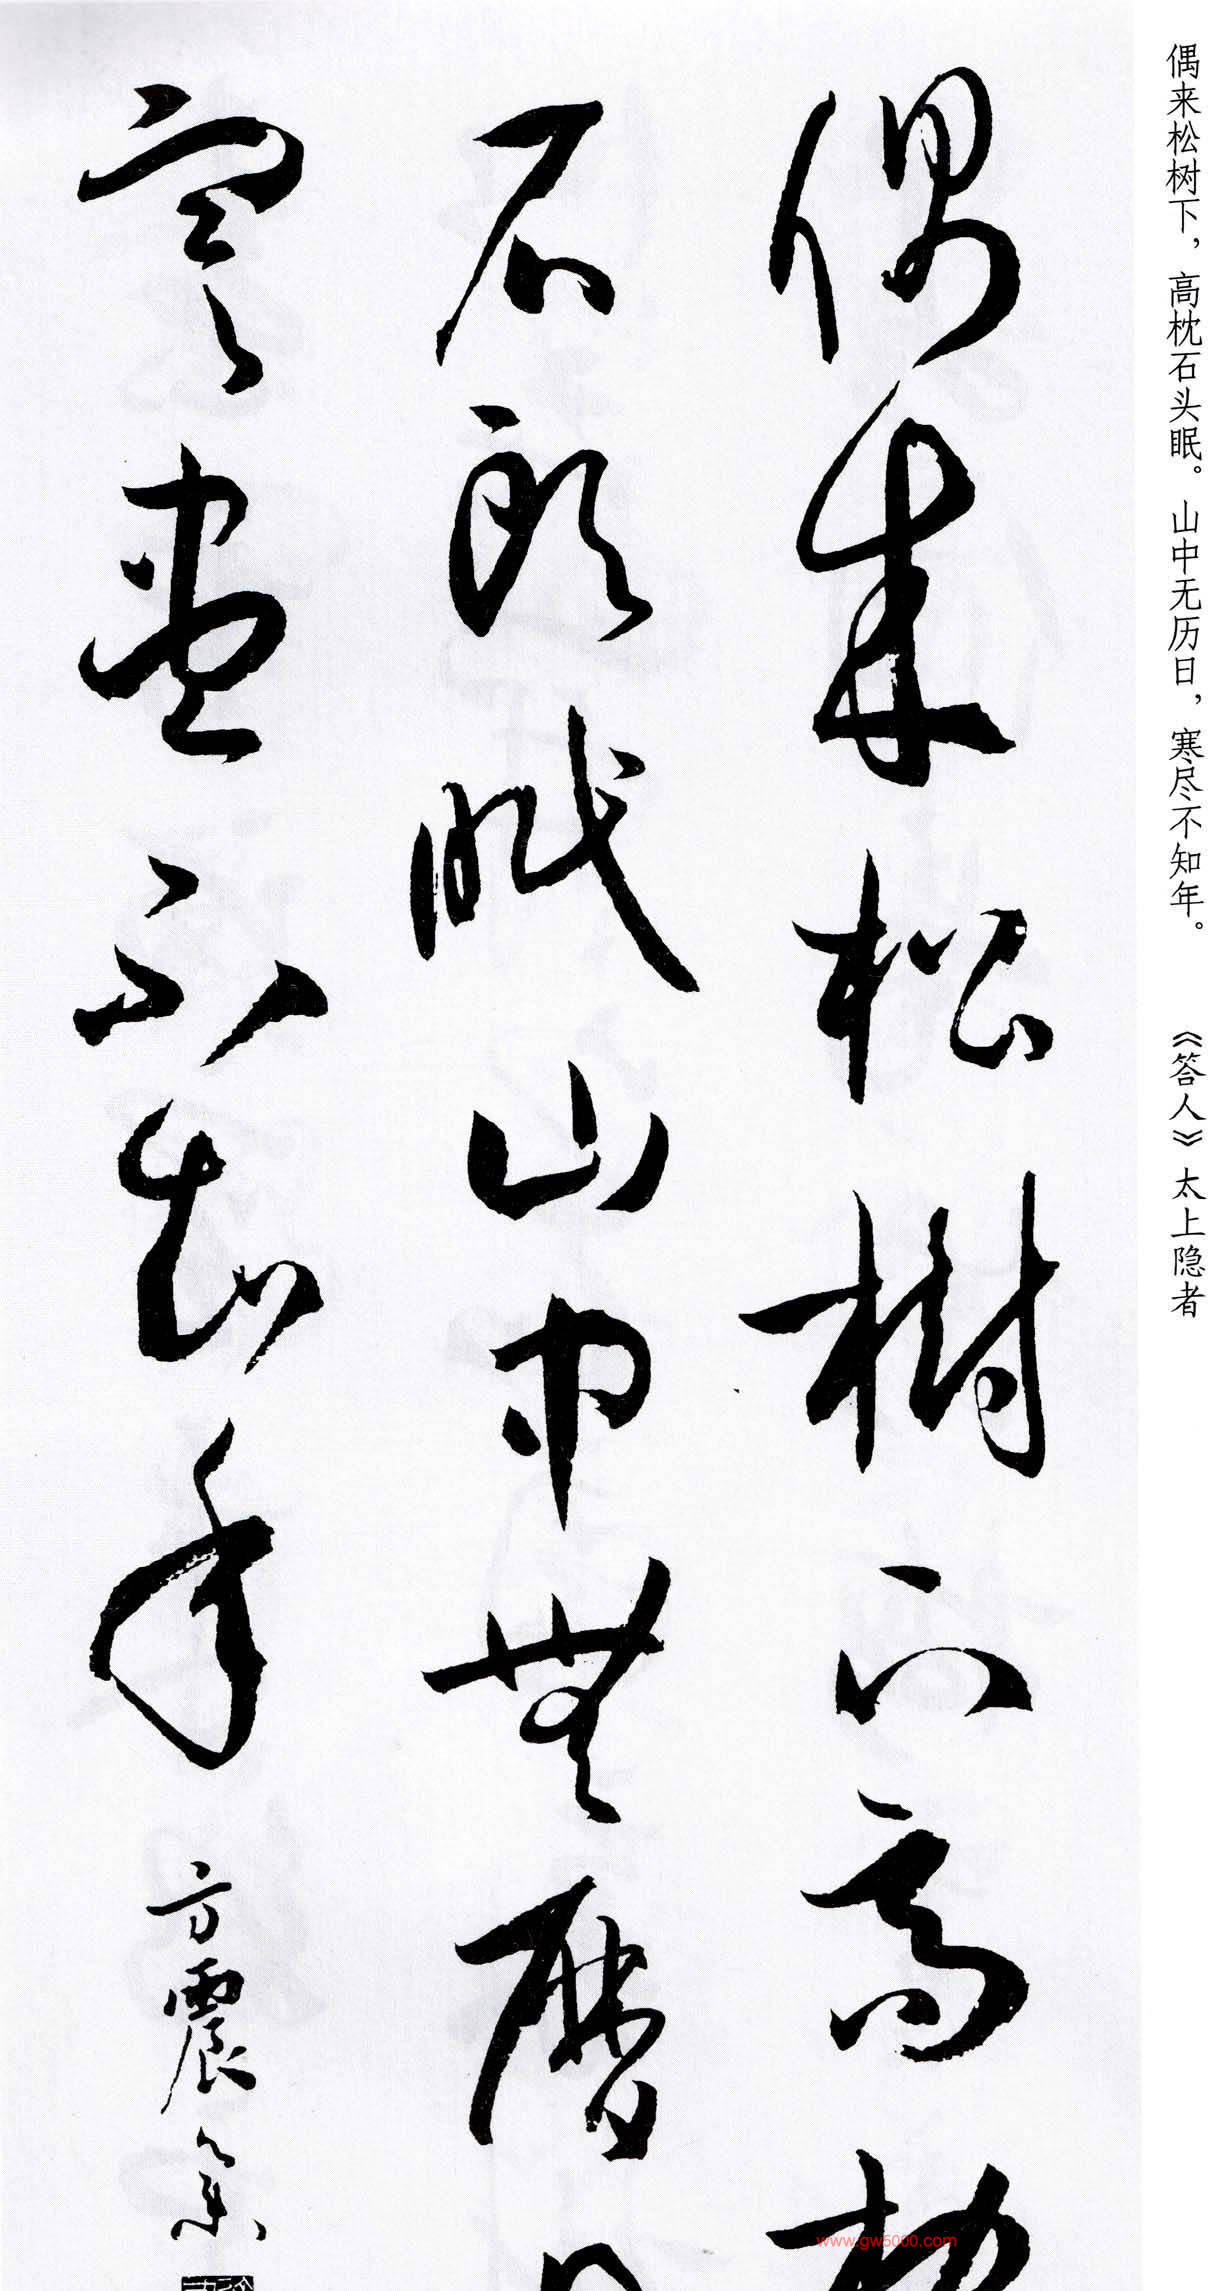 偶来松树下，高枕石头眠。山中无历日，寒尽不知年。 《答人》太上隐者
偶来松樹下高枕
石頭眠山中無曆日
寒盡不知年 方震
www.gw5000.com